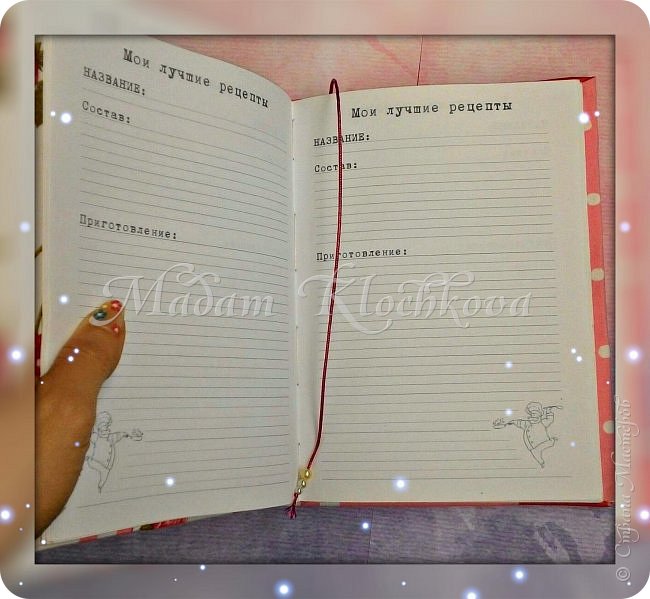 Мои лучшие рецепты
НАЗВАНИЕ:
Состав:
Приготовление:
Мои лучшие рецепты
НАЗВАНИЕ:
Состав:
Приготовление:
Madam Klochkova
© Страна Мастеров